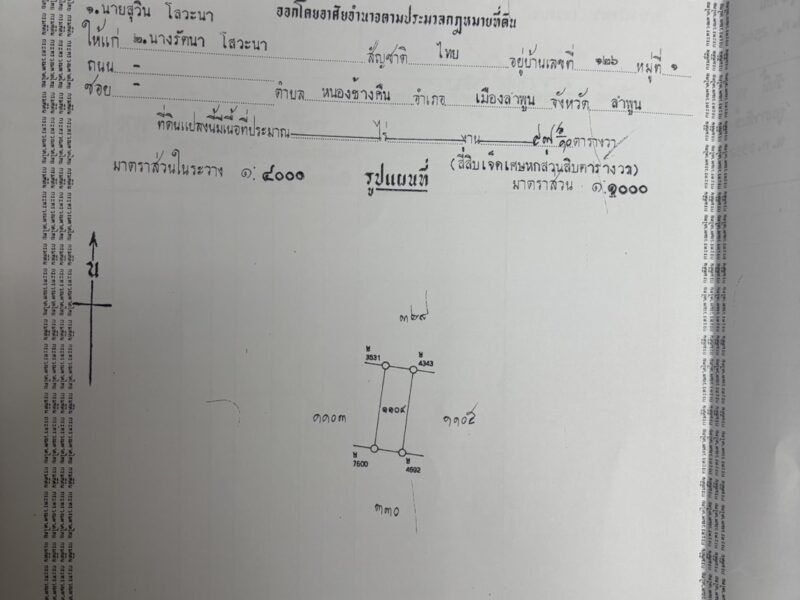 ออกโดยอาศัยอำนาจตามประมวลกฎหมายที่ดิน
๑.นายสุวิน โสวะนา
ให้แก่ ๒.นางรัตนา โสวะนา สัญชาติ ไทย อยู่บ้านเลขที่ ๑๒๖ หมู่ที่ ๑
ถนน -
ซอย - ตำบล หนองช้างคืน อำเภอ เมืองลำพูน จังหวัด ลำพูน
ที่ดินแปลงนี้มีเนื้อที่ประมาณ ไร่ งาน ๔๗ ๖/๑๐ ตารางวา
(สี่สิบเจ็ดเศษหกส่วนสิบตารางวา)
มาตราส่วนในระวาง ๑:๔๐๐๐ รูปแผนที่ มาตราส่วน ๑:๑๐๐๐
น
๓๒๙
ษ 3531 ษ 4343
๑๑๐๓ ๑๑๐๔ ๑๑๐๕
ษ 7600 ษ 4692
๓๓๐